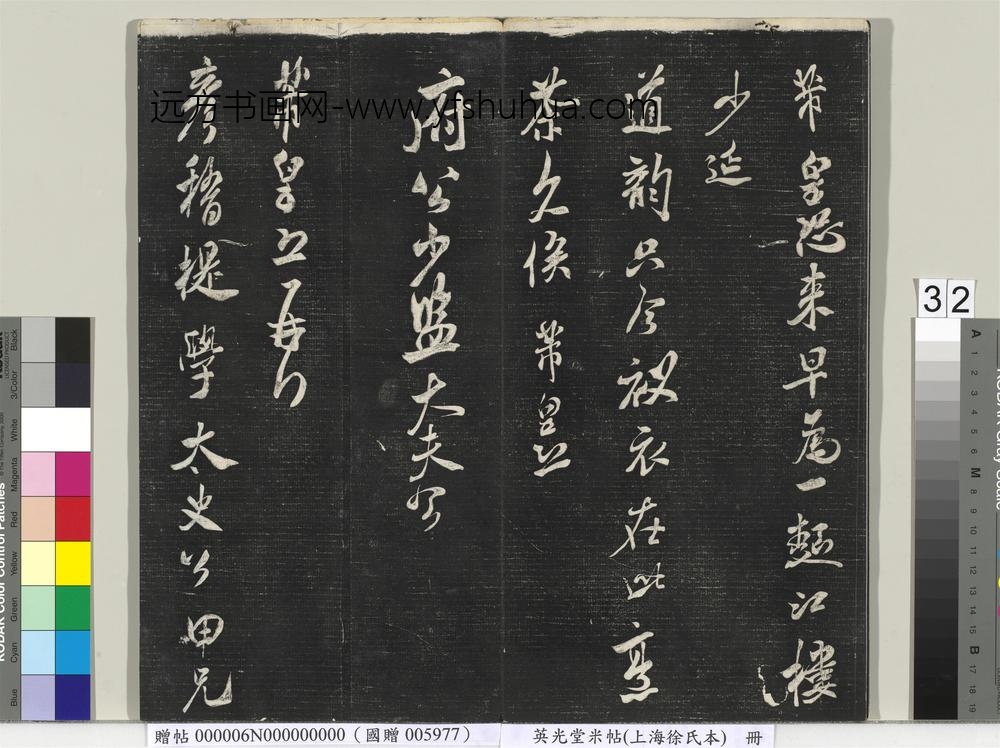 芾皇恐来早為一麵江樓
少延
道韵只今衩衣在此烹
茶久俟 芾皇恐
府公少监大夫
芾皇恐再
彦稽提學太史公甲兄
远方书画网-www.yfshuhua.com
32
贈帖 000006N000000000（國贈 005977）
英光堂米帖(上海徐氏本) 冊
KODAK Color Control Patches
Blue Cyan Green Yellow Red Magenta White 3/Color Black
A 1 2 3 4 5 6 M 8 9 10 11 12 13 14 15 B 17 18 19